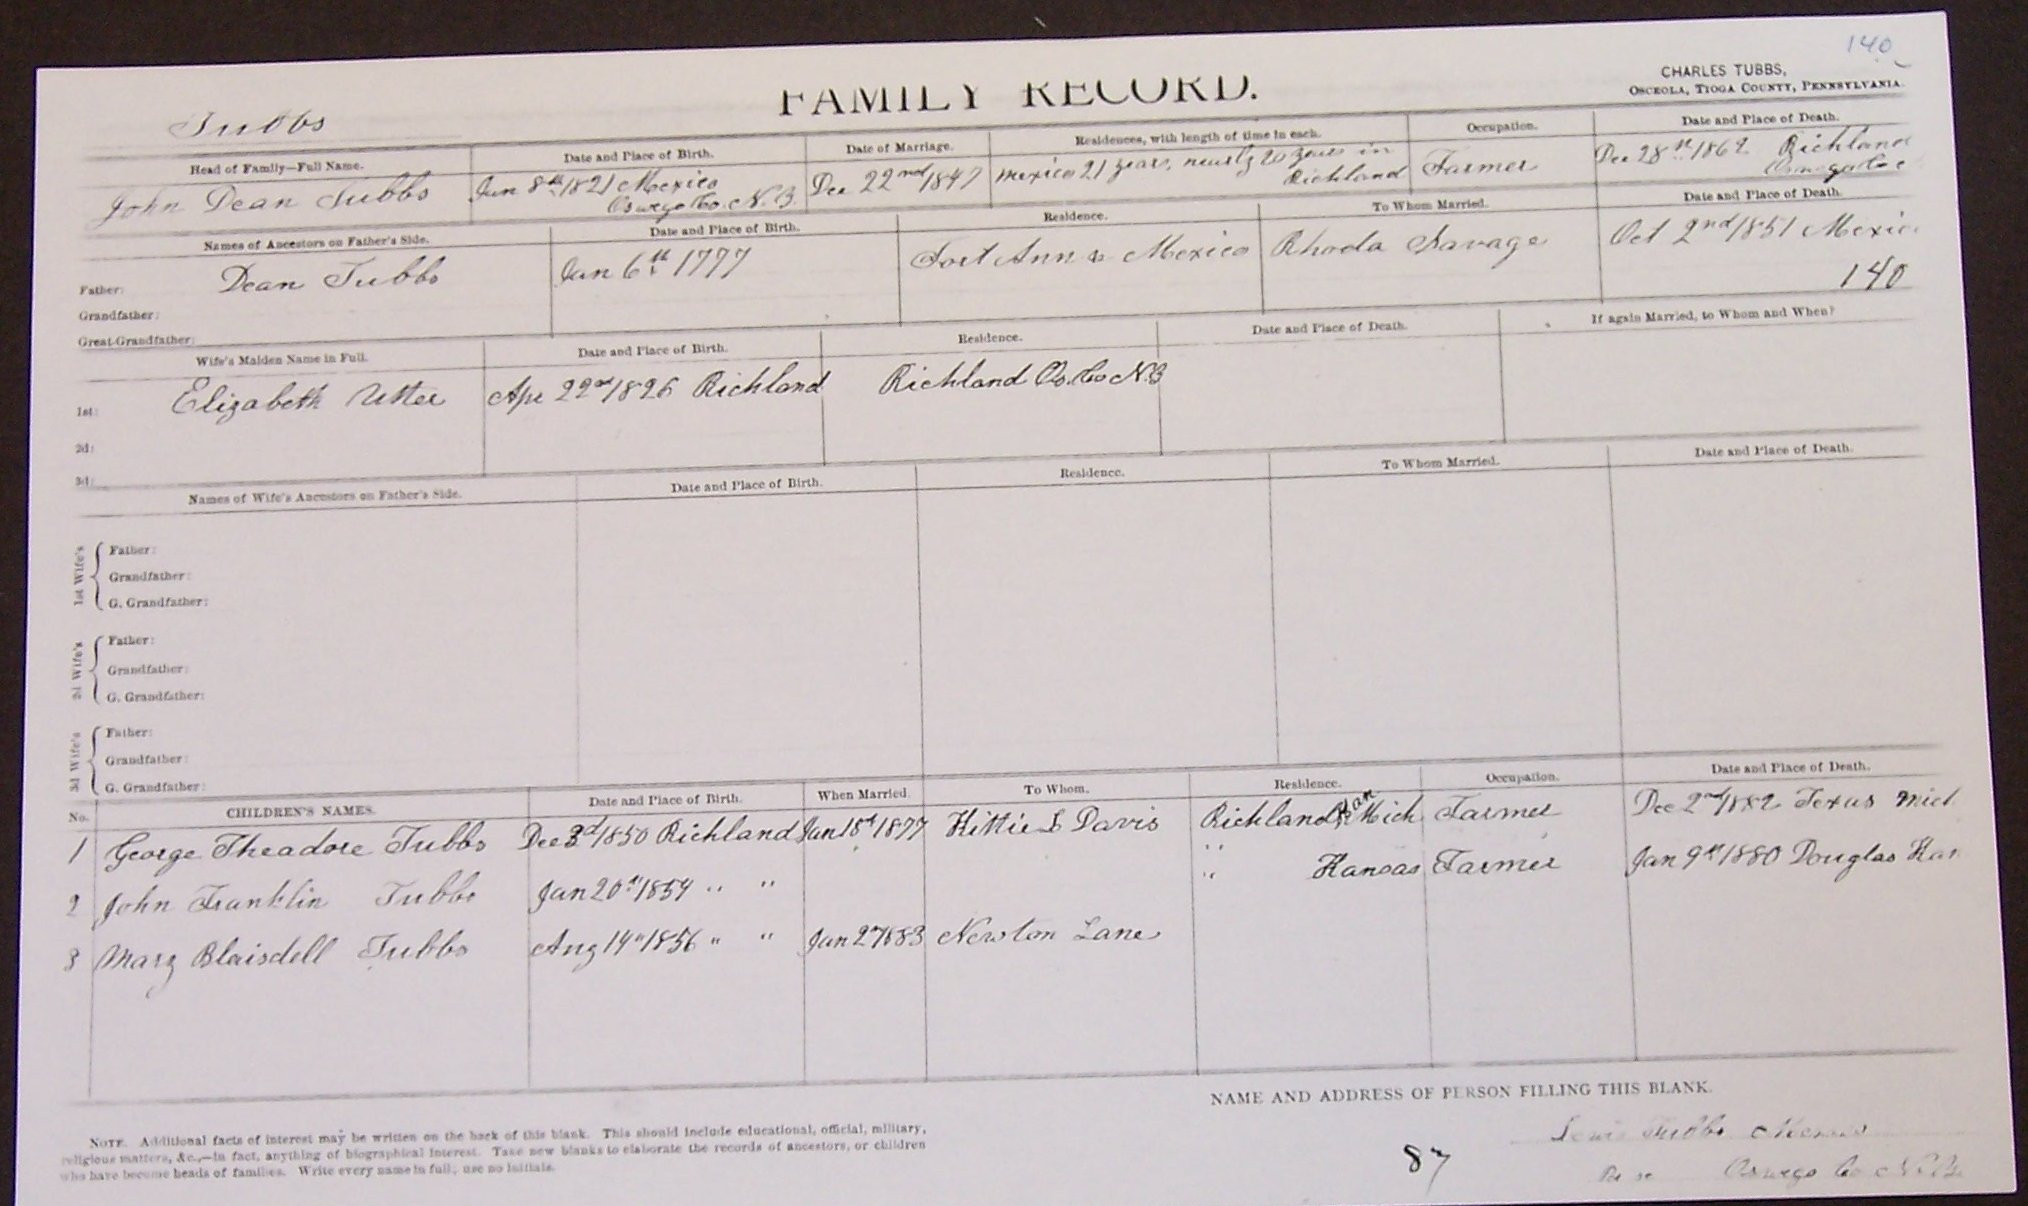 140
FAMILY RECORD.
CHARLES TUBBS,
OSCEOLA, TIOGA COUNTY, PENNSYLVANIA.
Tubbs
Head of Family—Full Name. Date and Place of Birth. Date of Marriage. Residences, with length of time in each. Occupation. Date and Place of Death.
John Dean Tubbs Jan 8th 1821 Mexico Dec 22nd 1847 Mexico 21 years, nearly 20 years in Farmer Dec 28th 1862 Richland
Oswego Co. N.Y. Richland Oswego Co
Names of Ancestors on Father's Side. Date and Place of Birth. Residence. To Whom Married. Date and Place of Death.
Father: Dean Tubbs Jan 6th 1777 Fort Ann & Mexico Rhoda Savage Oct 2nd 1851 Mexico
Grandfather: 140
Great-Grandfather:
Wife's Maiden Name in Full. Date and Place of Birth. Residence. Date and Place of Death. If again Married, to Whom and When?
1st: Elizabeth Utter Apr 22nd 1826 Richland Richland Os. Co N.Y
2d:
3d:
Names of Wife's Ancestors on Father's Side. Date and Place of Birth. Residence. To Whom Married. Date and Place of Death.
1st Wife's
Father:
Grandfather:
G. Grandfather:
2d Wife's
Father:
Grandfather:
G. Grandfather:
3d Wife's
Father:
Grandfather:
G. Grandfather:
No. CHILDREN'S NAMES. Date and Place of Birth. When Married. To Whom. Residence. Occupation. Date and Place of Death.
1 George Theadore Tubbs Dec 3d 1850 Richland Jan 18th 1877 Kittie L Davis Richland Kan Mich Farmer Dec 2nd 1882 Texas Mich
2 John Franklin Tubbs Jan 20th 1854 " " " Kansas Farmer Jan 9th 1880 Douglas Kan
3 Mary Blaisdell Tubbs Aug 14" 1856 " " Jan 2 1883 Newton Lane
NAME AND ADDRESS OF PERSON FILLING THIS BLANK.
Lewis Tubbs Mexico
Oswego Co N.Y.
87
NOTE. Additional facts of interest may be written on the back of this blank. This should include educational, official, military,
religious matters, &c.,—in fact, anything of biographical interest. Take new blanks to elaborate the records of ancestors, or children
who have become heads of families. Write every name in full, use no initials.